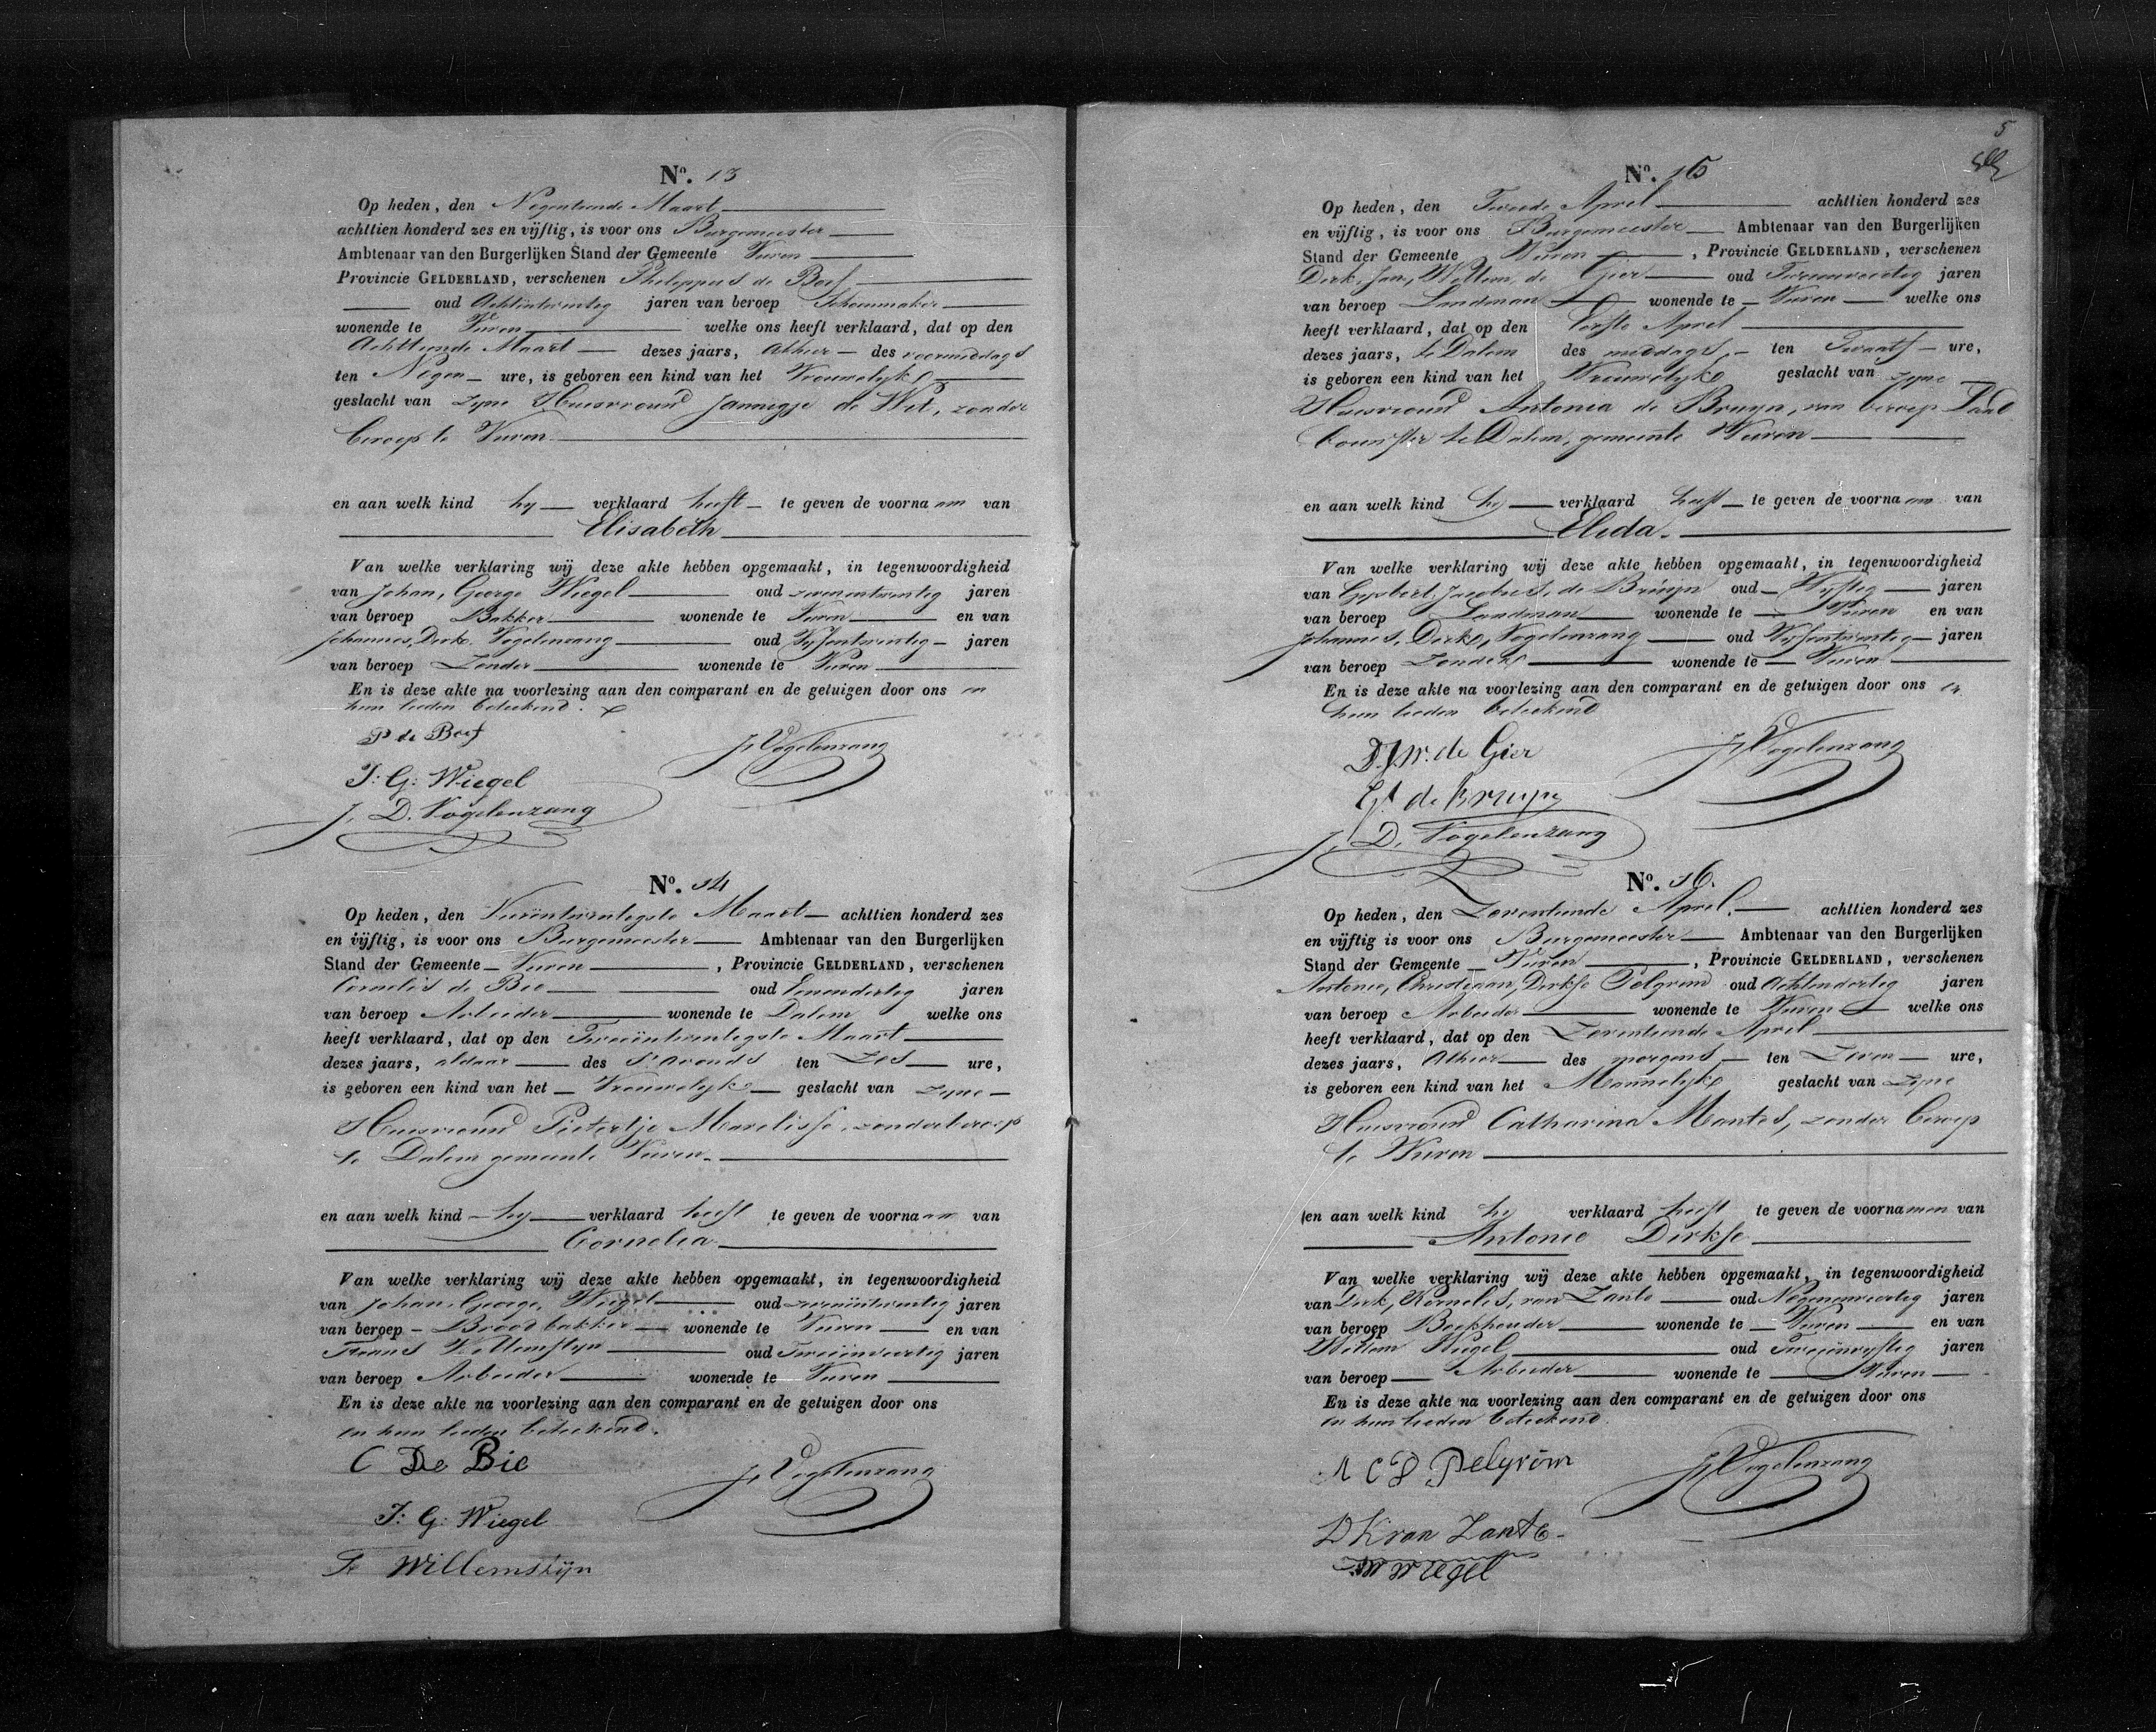 No. 13
Op heden, den Negentiende Maart
achttien honderd zes en vijftig, is voor ons Burgemeester
Ambtenaar van den Burgerlijken Stand der Gemeente Vuren
Provincie GELDERLAND, verschenen Phileppus de Boef
oud Achtentwintig jaren van beroep Schoenmaker
wonende te Vuren welke ons heeft verklaard, dat op den
Achttiende Maart dezes jaars, Alhier des voormiddags
ten Negen ure, is geboren een kind van het Vrouwelijke
geslacht van zijne Huisvrouw Jannigje de Wit, zonder
beroep te Vuren
en aan welk kind hij verklaard heeft te geven de voornaam van
Elisabeth
Van welke verklaring wij deze akte hebben opgemaakt, in tegenwoordigheid
van Johan, George Wiegel oud zevenentwintig jaren
van beroep Bakker wonende te Vuren en van
Johannes, Dirk Vogelenzang oud Vijfentwintig jaren
van beroep Zonder wonende te Vuren
En is deze akte na voorlezing aan den comparant en de getuigen door ons en
hun lieden beteekend.
P de Boef
J Vogelenzang
J: G: Wiegel
J. D. Vogelenzang
No. 14
Op heden, den Vierentwintigste Maart achttien honderd zes
en vijftig, is voor ons Burgemeester Ambtenaar van den Burgerlijken
Stand der Gemeente Vuren, Provincie GELDERLAND, verschenen
Cornelis de Bie oud Eenendertig jaren
van beroep Arbeider wonende te Dalem welke ons
heeft verklaard, dat op den Tweeentwintigste Maart
dezes jaars, aldaar des s'avonds ten Zes ure,
is geboren een kind van het Vrouwelijke geslacht van zijne
Huisvrouw Pietertje Marelisse, zonder beroep
te Dalem gemeente Vuren
en aan welk kind hij verklaard heeft te geven de voornaam van
Cornelia
Van welke verklaring wij deze akte hebben opgemaakt, in tegenwoordigheid
van Johan George, Wiegel oud zevenentwintig jaren
van beroep Broodbakker wonende te Vuren en van
Frans Willemstijn oud Tweeenveertig jaren
van beroep Arbeider wonende te Vuren
En is deze akte na voorlezing aan den comparant en de getuigen door ons
en hun lieden beteekend.
C De Bie
J Vogelenzang
J: G: Wiegel
F Willemstijn
5
No. 15
Op heden, den Tweede April achttien honderd zes
en vijftig, is voor ons Burgemeester Ambtenaar van den Burgerlijken
Stand der Gemeente Vuren, Provincie GELDERLAND, verschenen
Dirk, Jan, Willem, de Gier oud Tweeenveertig jaren
van beroep Landman wonende te Vuren welke ons
heeft verklaard, dat op den Eerste April
dezes jaars, te Dalem des middags ten Twaalf ure,
is geboren een kind van het Vrouwelijke geslacht van zijne
Huisvrouw Antonia de Bruyn, van beroep Land
bouwster te Dalem, gemeente Vuren
en aan welk kind hij verklaard heeft te geven de voornaam van
Elida.
Van welke verklaring wij deze akte hebben opgemaakt, in tegenwoordigheid
van Gysbert, Jacobus, de Bruijn oud Vijftig jaren
van beroep Landman wonende te Vuren en van
Johannes, Dirk, Vogelenzang oud Vijfentwintig jaren
van beroep Zonder wonende te Vuren
En is deze akte na voorlezing aan den comparant en de getuigen door ons en
hun lieden beteekend
D.J.W. de Gier
J Vogelenzang
de Bruyn
J. D. Vogelenzang
No. 16.
Op heden, den Zeventiende April. achttien honderd zes
en vijftig is voor ons Burgemeester Ambtenaar van den Burgerlijken
Stand der Gemeente Vuren, Provincie GELDERLAND, verschenen
Antonie, Christiaan, Dirkse Pelgrim oud Achtendertig jaren
van beroep Arbeider wonende te Vuren welke ons
heeft verklaard, dat op den Zeventiende April
dezes jaars, Alhier des morgens ten Zeven ure,
is geboren een kind van het Mannelijke geslacht van zijne
Huisvrouw Catharina Mantes, zonder beroep
te Vuren
en aan welk kind hij verklaard heeft te geven de voornamen van
Antonie Dirkse
Van welke verklaring wij deze akte hebben opgemaakt, in tegenwoordigheid
van Dirk, Kornelis, van Zante oud Negenenveertig jaren
van beroep Boekhouder wonende te Vuren en van
Willem Wiegel oud Tweeenvijftig jaren
van beroep Arbeider wonende te Vuren
En is deze akte na voorlezing aan den comparant en de getuigen door ons
en hun lieden beteekend.
A C D Pelgröm
J Vogelenzang
D K van Zante
W Wiegel